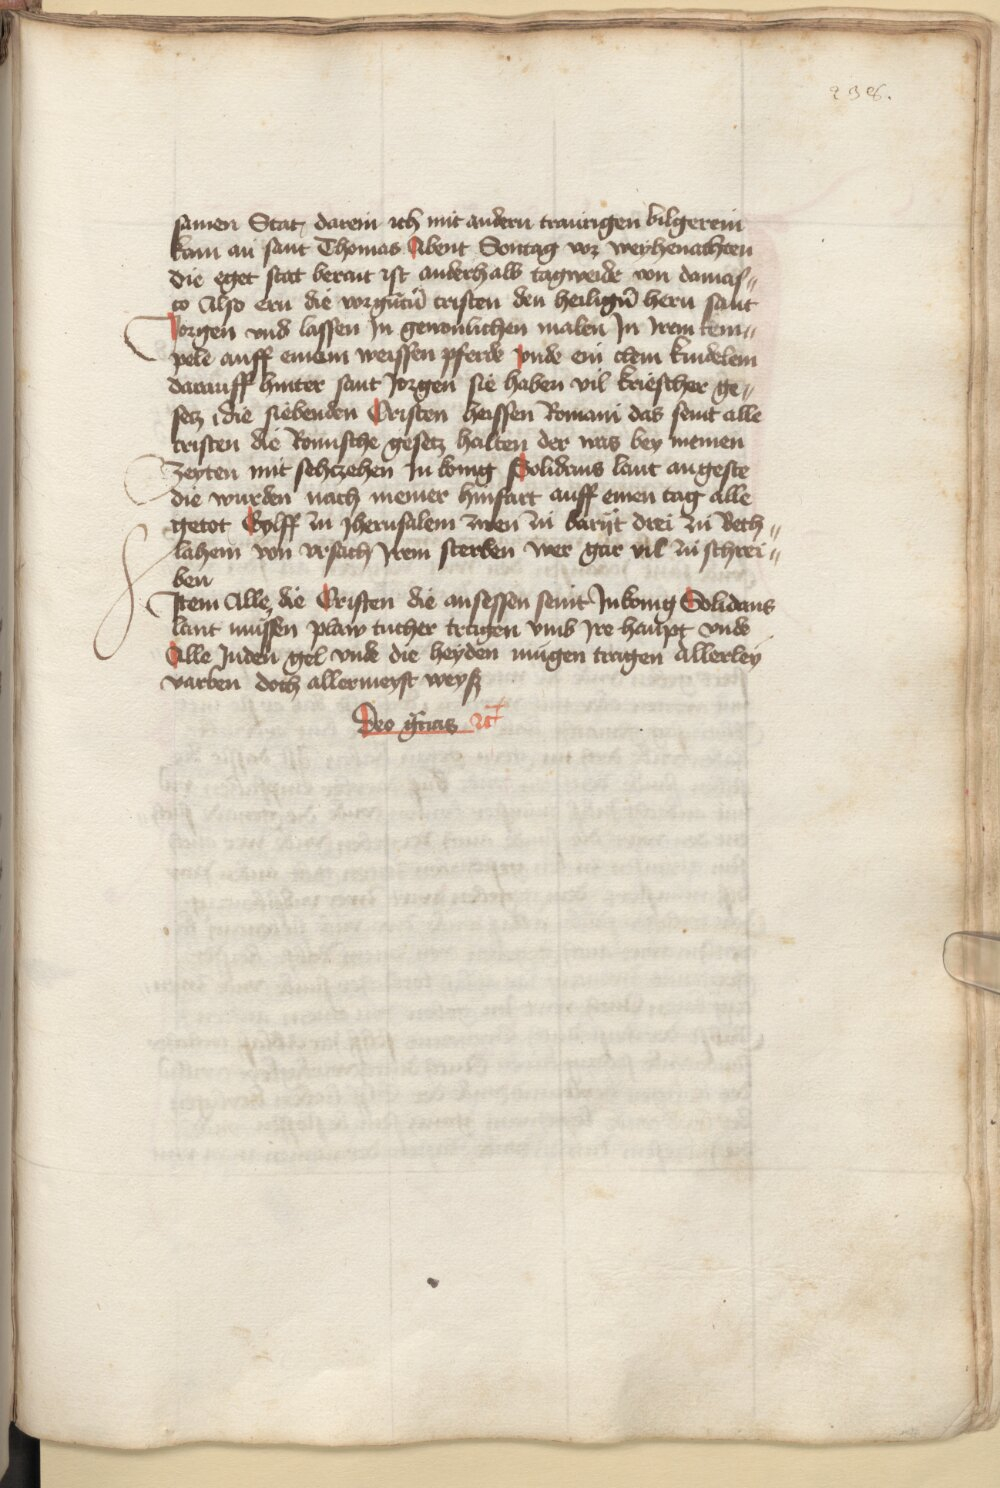 238.
samen Stat, darein ich mit andern traurigen bilgerein
kam an sant Thomas Abent Sontag vor weyhenachten
die eget statt berait ist anderhalb tagweide von damas„
co Also ern die vorgūtū cristen den heiligū hern sant
Jorgen vnd lassen Jn gewonlichen malen Jn Jrem tem„
pele auff einem weissen pferde vnde ein clein kindelein
darauff hinter sant Jorgen sie haben vil kriescher ge„
setz, die siebenden Cristen heissen Romani das seint alle
cristen die Romische gesetz halten der was bey meinen
Zeyten mit sehczehen Jn konig Solidans lant angeste
die wurden nach meiner hinfart auff einen tag alle
getot Eylff zu Jherusalem zwen zu barijt drei zu Beth„
lahem von vrsach Jrem sterben wer gar vil zu schrei„
ben
Jtem Alle die Cristen die ansessen seint Jn konig Solidans
lant mussen plaw tucher tragen vmb Jre haupt vnde
Alle Juden gel vnde die heyden mugen tragen Allerley
varben doch allermeyst weyß
Deo gr̄as rc̄